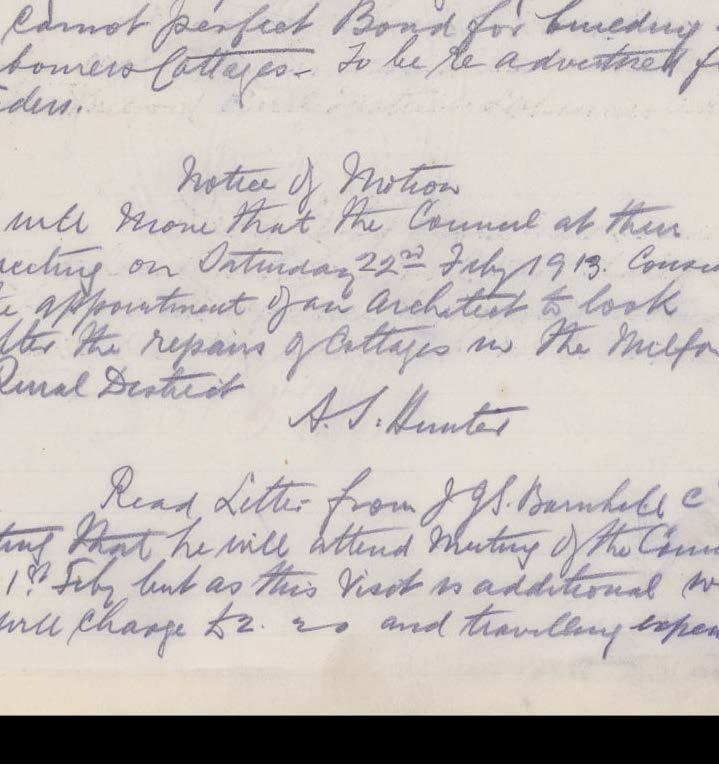 cannot perfect Bond for building
bourers Cottages - To be re advertised f
ders.
Notice of Motion
will move that the Council at their
eeting on Saturday 22nd Feby 1913. Consi
e appointment of an Architect to look
fter the repairs of Cottages in the Milfo
Rural District
A. S. Hunter
Read Letter from J G S. Barnhill C
ting that he will attend Meeting of the Coun
1st Feby but as this Visit is additional w
will charge £2. and travelling expen